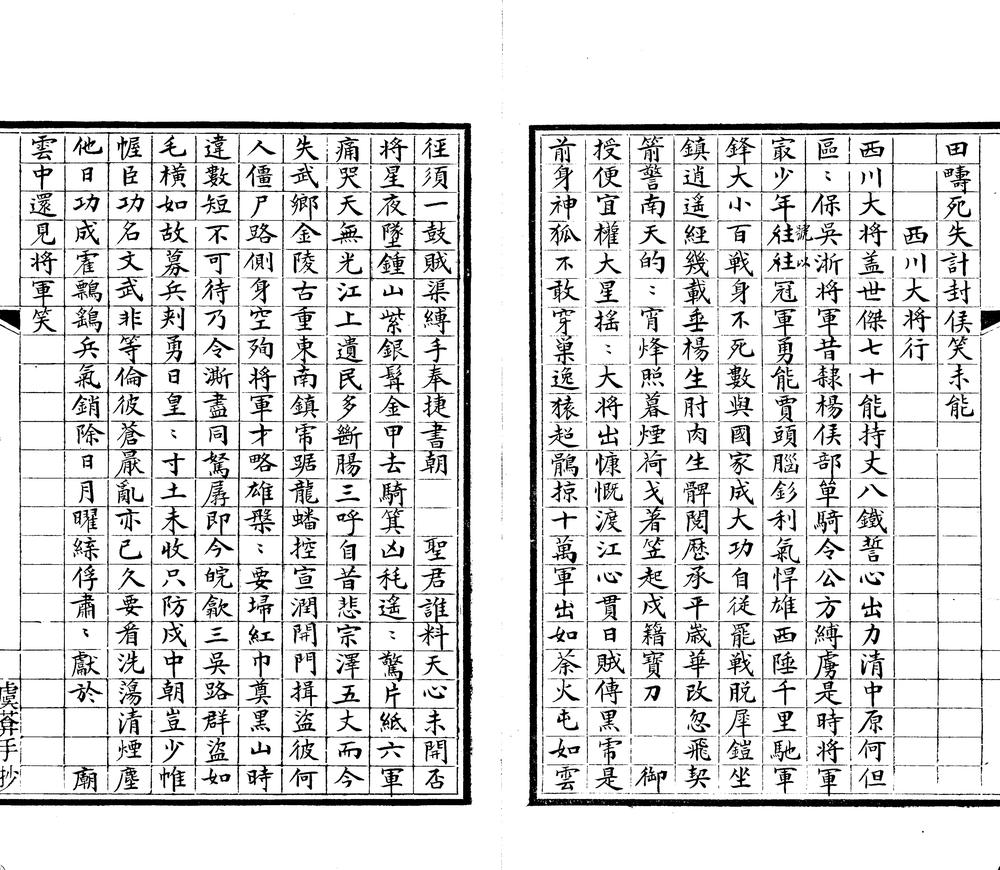 田疇死失計封侯笑未能
西川大将行
西川大将盖世傑七十能持丈八鐵誓心出力清中原何但
區〻保吳浙将軍昔隸楊侯部單騎令公方縛虜是時将軍
㝡少年往往號以冠軍勇能賈頭腦彭利氣悍雄西陲千里馳軍
鋒大小百戰身不死數與國家成大功自從罷戰脱犀鎧坐
鎮逍遥經幾載垂楊生肘肉生髀閱歷承平歲華改忽飛契
箭警南天的〻宵烽照暮煙荷戈著笠起戍籍寶刀 御
授便宜權大星摇〻大将出慷慨渡江心貫日賊傳黑帝是
前身神狐不敢穿巢逸猿超鶻掠十萬軍出如荼火屯如雲
徑須一鼓賊渠縛手奉捷書朝 聖君誰料天心未開否
将星夜墜鍾山紫銀髯金甲去騎箕凶秏遥〻驚片紙六軍
痛哭天無光江上遺民多斷腸三呼自昔悲宗澤五丈而今
失武鄉金陵古重東南鎮帝踞龍蟠控宣潤開門揖盜彼何
人僵尸路側身空殉将軍才略雄槩〻要埽紅巾奠黑山時
違數短不可待乃令澌盡同駑孱即今皖歙三吳路群盜如
毛橫如故募兵剌勇日皇〻寸土未收只防戍中朝豈少帷
幄臣功名文武非等倫彼蒼嚴亂亦已久要看洗蕩清煙塵
他日功成霍鸚鷂兵氣銷除日月曜絲俘肅〻獻於 廟
雲中還見将軍笑
虞莽手抄